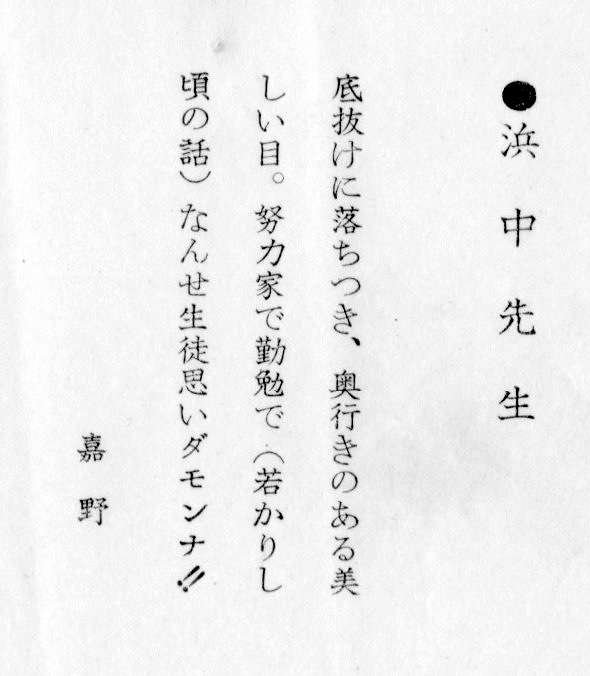 ●浜中先生
底抜けに落ちつき、奥行きのある美
しい目。努力家で勤勉で（若かりし
頃の話）なんせ生徒思いダモンナ!!
嘉野